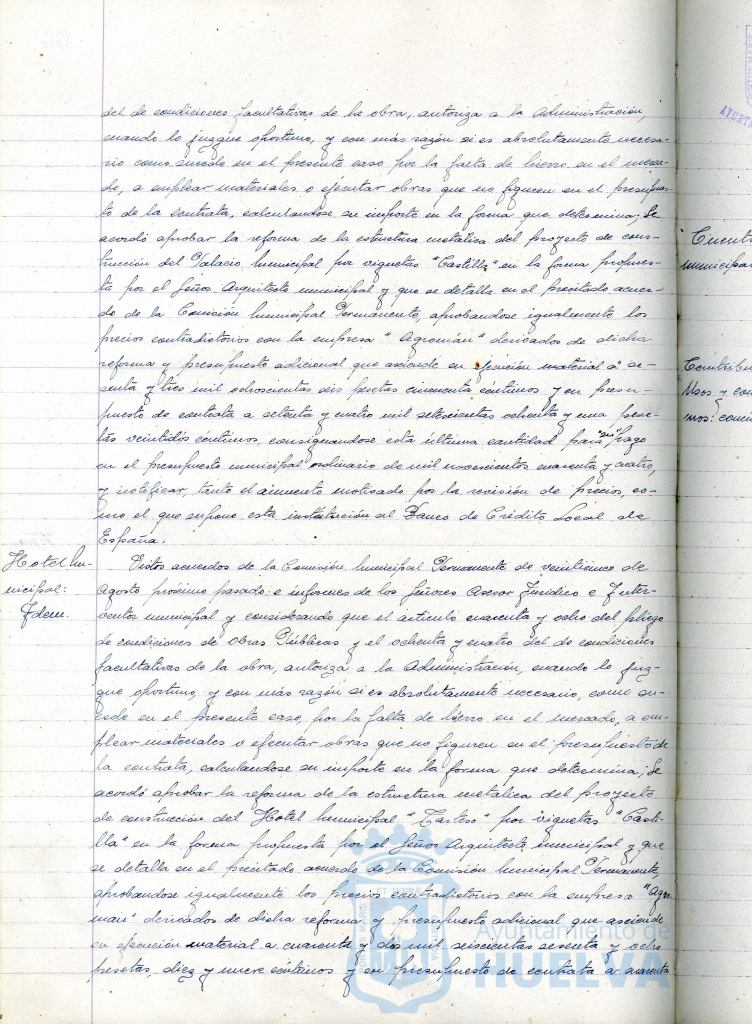 del de condiciones facultativas de la obra, autoriza a la Administración,
cuando lo juzgue oportuno, y con más razón si es absolutamente necesa-
rio como sucede en el presente caso por la falta de hierro en el merca-
do, a emplear materiales o ejecutar obras que no figuren en el presupues-
to de la contrata, calculandose su importe en la forma que determina; Se
acordó aprobar la reforma de la estructura metalica del proyecto de cons-
trucción del Palacio Municipal por viguetas "Castilla" en la forma propues-
ta por el Señor Arquitecto municipal y que se detalla en el precitado acuer-
do de la Comisión Municipal Permanente, aprobandose igualmente los
precios contradictorios con la empresa "Agroman" derivados de dicha
reforma y presupuesto adicional que asciende en ejecución material a se-
senta y tres mil ochocientas seis pesetas cincuenta céntimos y en presu-
puesto de contrata a setenta y cuatro mil setecientas ochenta y una pese-
tas veintidós céntimos, consignandose esta ultima cantidad para "su" pago
en el presupuesto municipal ordinario de mil novecientos cuarenta y cuatro,
y notificar, tanto el aumento motivado por la revisión de precios, co-
mo el que supone esta institución al Banco de Crédito Local de
España.
Hotel Mu-
nicipal:
Idem.
Vistos acuerdos de la Comisión Municipal Permanente de veinticinco de
Agosto próximo pasado e informes de los Señores Asesor Juridico e Inter-
ventor municipal y considerando que el articulo cuarenta y ocho del pliego
de condiciones de Obras Públicas y el ochenta y cuatro del de condiciones
facultativas de la obra, autoriza a la Administración, cuando lo juz-
gue oportuno, y con más razón si es absolutamente necesario, como su-
cede en el presente caso, por la falta de hierro en el mercado, a em-
plear materiales o ejecutar obras que no figuren en el presupuesto de
la contrata, calculandose su importe en la forma que determina; Se
acordó aprobar la reforma de la estructura metalica del proyecto
de construcción del Hotel Municipal "Tarteso" por viguetas "Casti-
lla" en la forma propuesta por el Señor Arquitecto municipal y que
se detalla en el precitado acuerdo de la Comisión Municipal Permanente,
aprobandose igualmente los precios contradictorios con la empresa "Agro-
man" derivados de dicha reforma y presupuesto adicional que asciende
en ejecución material a cuarenta y dos mil seiscientas sesenta y ocho
pesetas, diez y nueve céntimos y en presupuesto de contrata a cuarenta
Ayuntamiento de
HUELVA
Cuent
municipa
Contribu
Usos y con
mos: conci
AYUNT